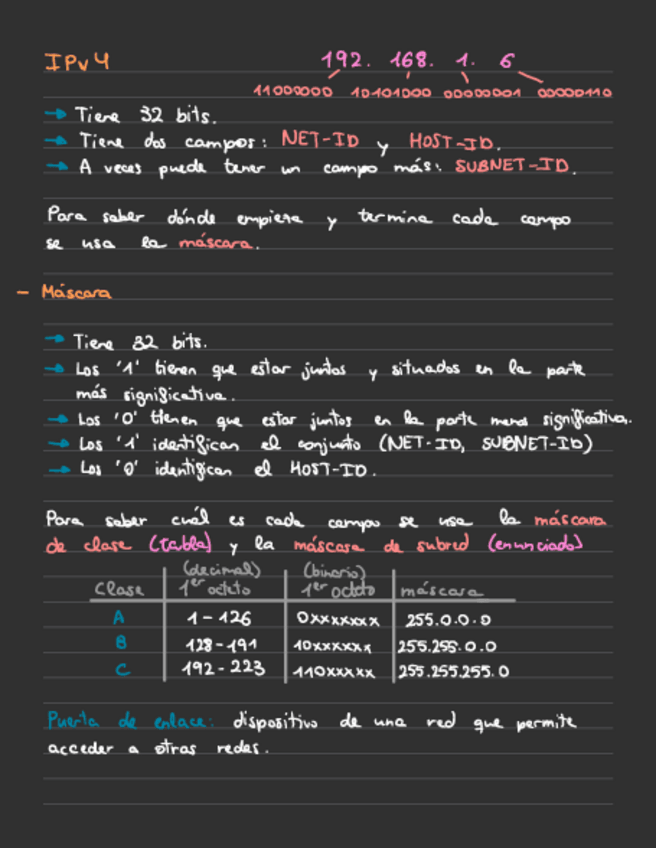 IPv4 192. 168. 1. 6
11000000 10101000 00000001 00000110
→ Tiene 32 bits.
→ Tiene dos campos: NET-ID y HOST-ID.
→ A veces puede tener un campo más: SUBNET-ID.
Para saber dónde empieza y termina cada campo
se usa la máscara.
- Máscara
→ Tiene 32 bits.
→ Los '1' tienen que estar juntos y situados en la parte
más significativa.
→ Los '0' tienen que estar juntos en la parte menos significativa.
→ Los '1' identifican el conjunto (NET-ID, SUBNET-ID)
→ Los '0' identifican el HOST-ID.
Para saber cuál es cada campo se usa la máscara
de clase (tabla) y la máscara de subred (enunciado)
(decimal) (binario)
Clase 1er octeto 1er octeto máscara
A 1-126 0xxxxxxx 255.0.0.0
B 128-191 10xxxxxx 255.255.0.0
C 192-223 110xxxxx 255.255.255.0
Puerta de enlace: dispositivo de una red que permite
acceder a otras redes.